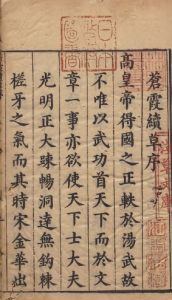 蒼霞續草序
高皇帝得國之正軼於湯武故
不唯以武功首天下而於文
章一事亦欲使天下士大夫
光明正大踈暢洞達無鈎棘
槎牙之氣而其時宋金華出